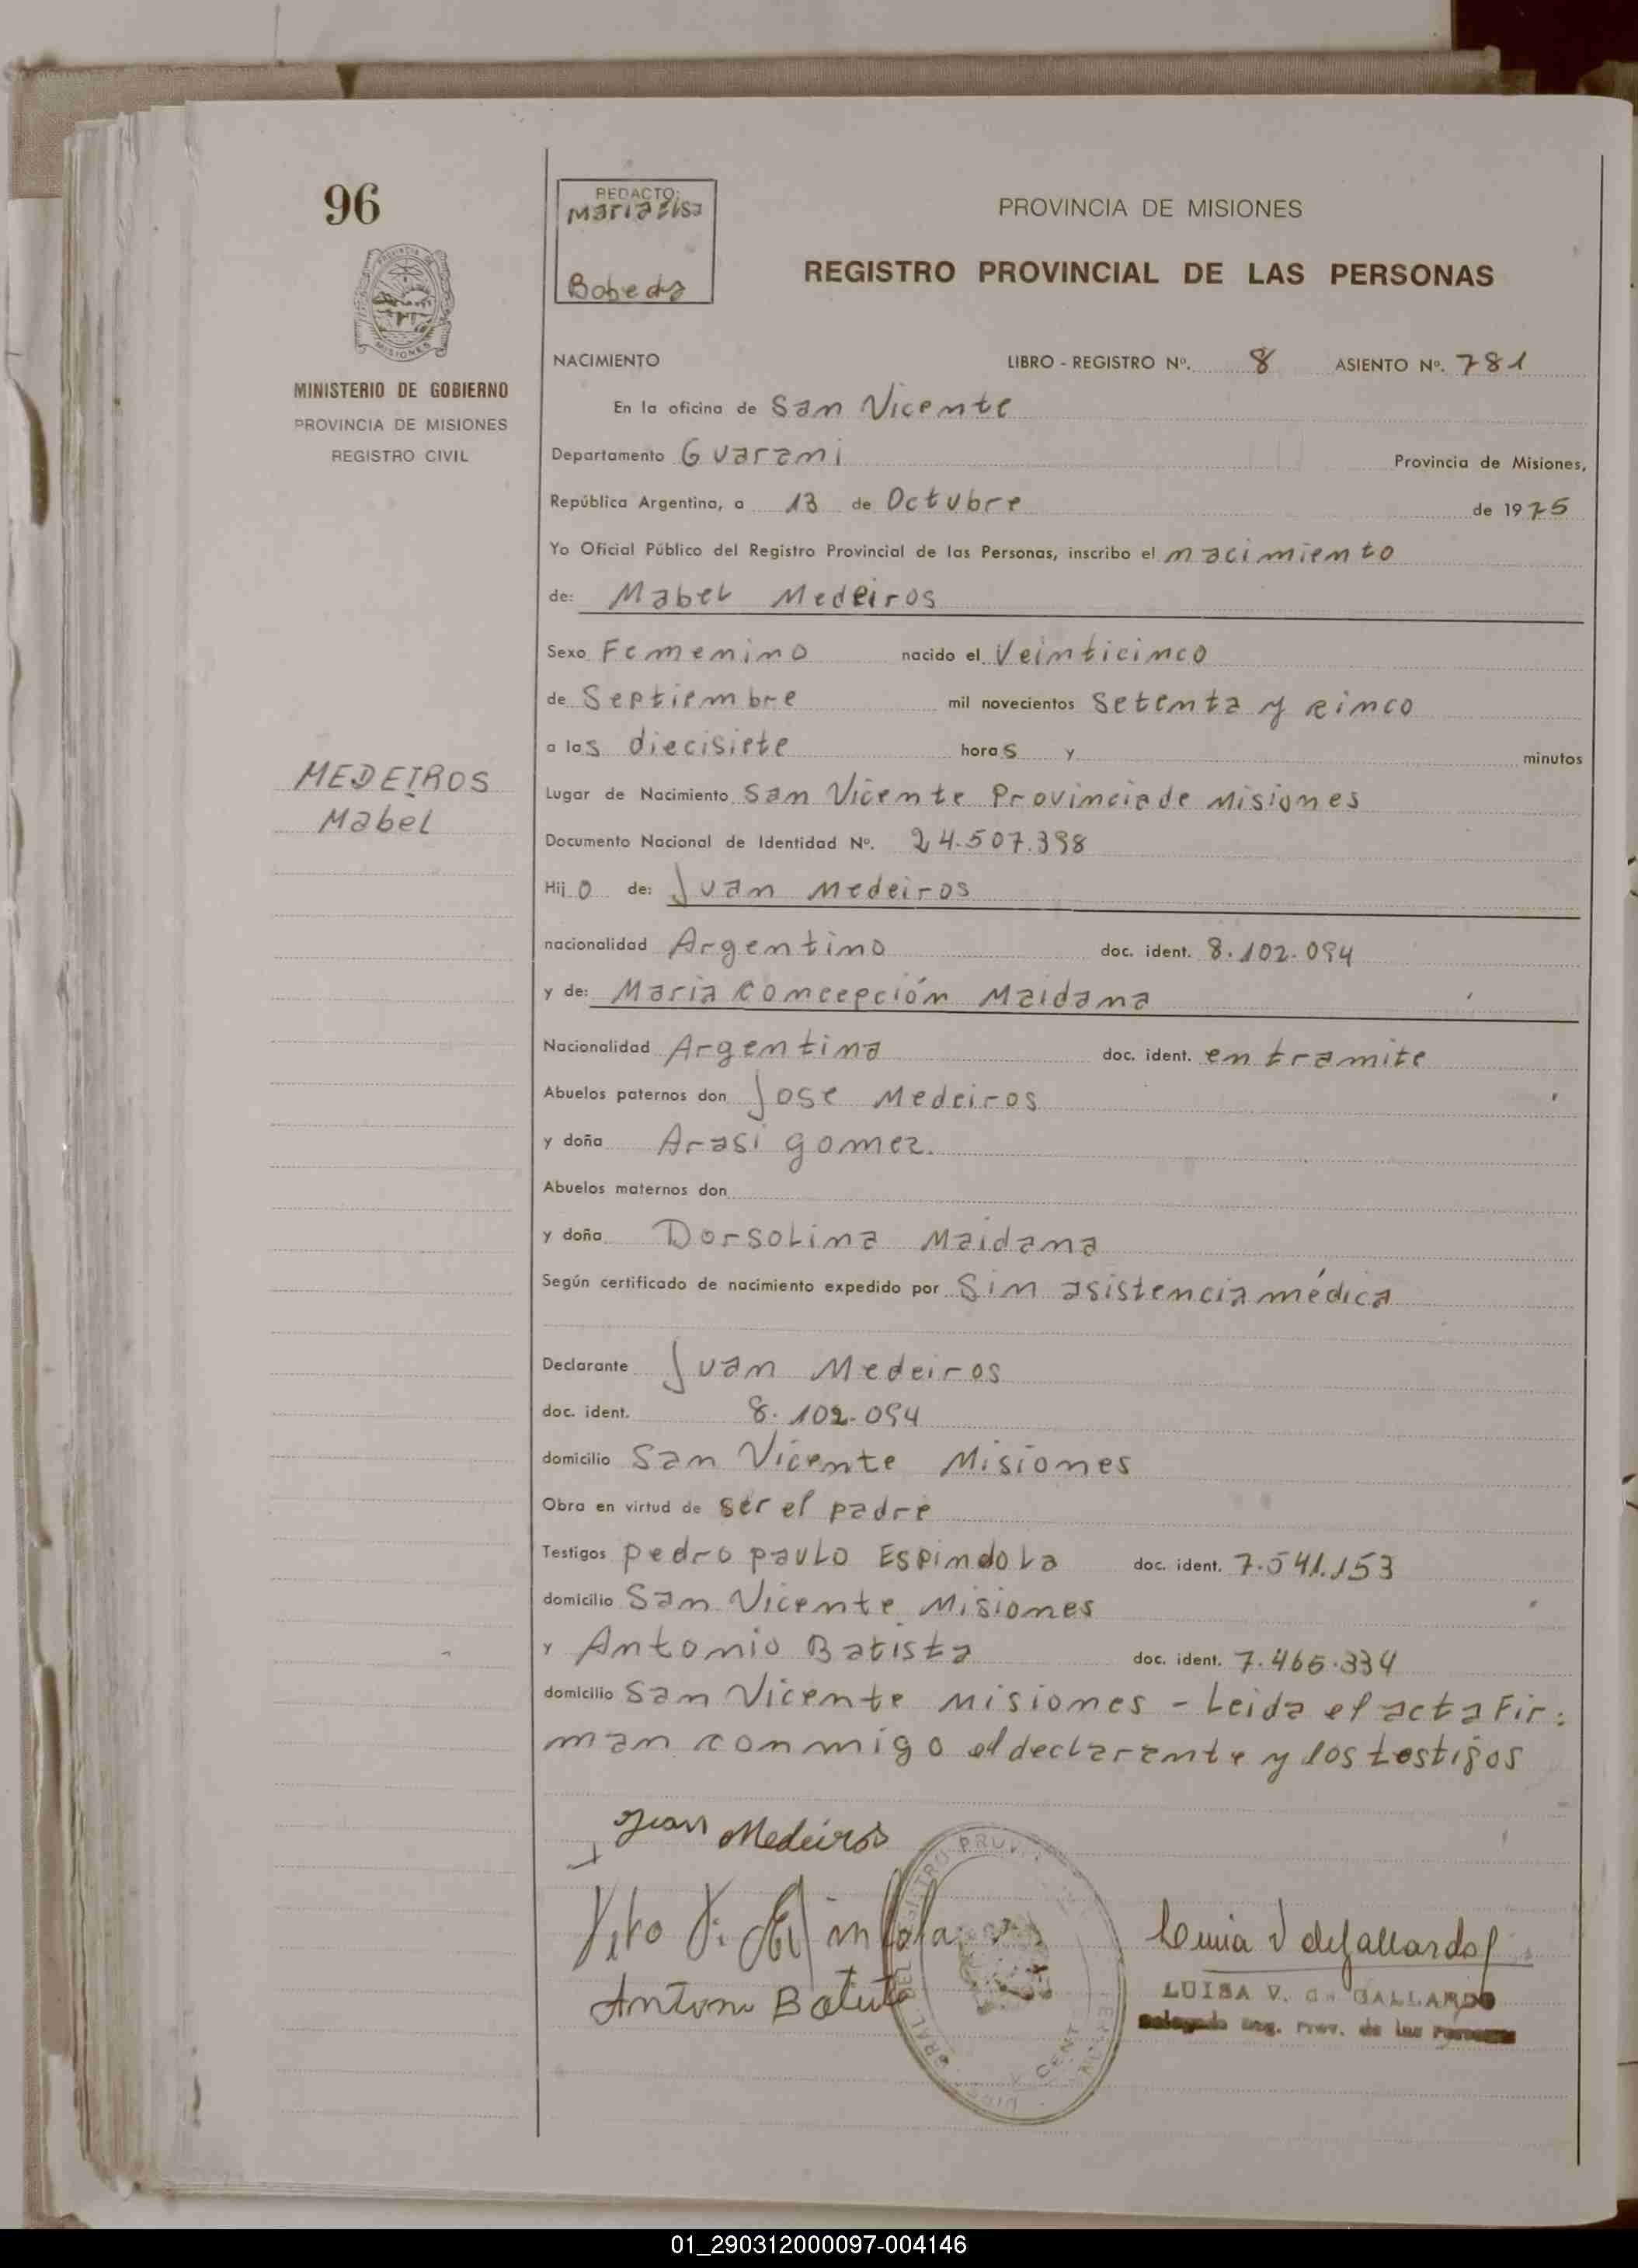 96
REDACTO:
Maria Elsa
Bobeda
PROVINCIA DE MISIONES
REGISTRO PROVINCIAL DE LAS PERSONAS
PROVINCIA DE
MISIONES
MINISTERIO DE GOBIERNO
PROVINCIA DE MISIONES
REGISTRO CIVIL
MEDEIROS
Mabel
NACIMIENTO LIBRO - REGISTRO Nº. 8 ASIENTO Nº. 781
En la oficina de San Vicente
Departamento Guarani Provincia de Misiones,
República Argentina, a 13 de Octubre de 1975
Yo Oficial Público del Registro Provincial de las Personas, inscribo el nacimiento
de: Mabel Medeiros
Sexo Femenino nacido el Veinticinco
de Septiembre mil novecientos setenta y cinco
a las diecisiete horas y minutos
Lugar de Nacimiento San Vicente Provincia de Misiones
Documento Nacional de Identidad Nº. 24.507.398
Hijo de: Juan Medeiros
nacionalidad Argentino doc. ident. 8.102.094
y de: Maria Concepción Maidana
Nacionalidad Argentina doc. ident. en tramite
Abuelos paternos don Jose Medeiros
y doña Arasi gomez.
Abuelos maternos don
y doña Dorsolina Maidana
Según certificado de nacimiento expedido por Sin asistencia médica
Declarante Juan Medeiros
doc. ident. 8.102.094
domicilio San Vicente Misiones
Obra en virtud de ser el padre
Testigos pedro paulo Espindola doc. ident. 7.541.153
domicilio San Vicente Misiones
y Antonio Batista doc. ident. 7.465.334
domicilio San Vicente Misiones - Leida el acta Fir:
man conmigo el declarante y los testigos
Juan Medeiros
Antonio Batista
LUISA V. de GALLARDO
Delegada Reg. Prov. de las Personas
01_290312000097-004146